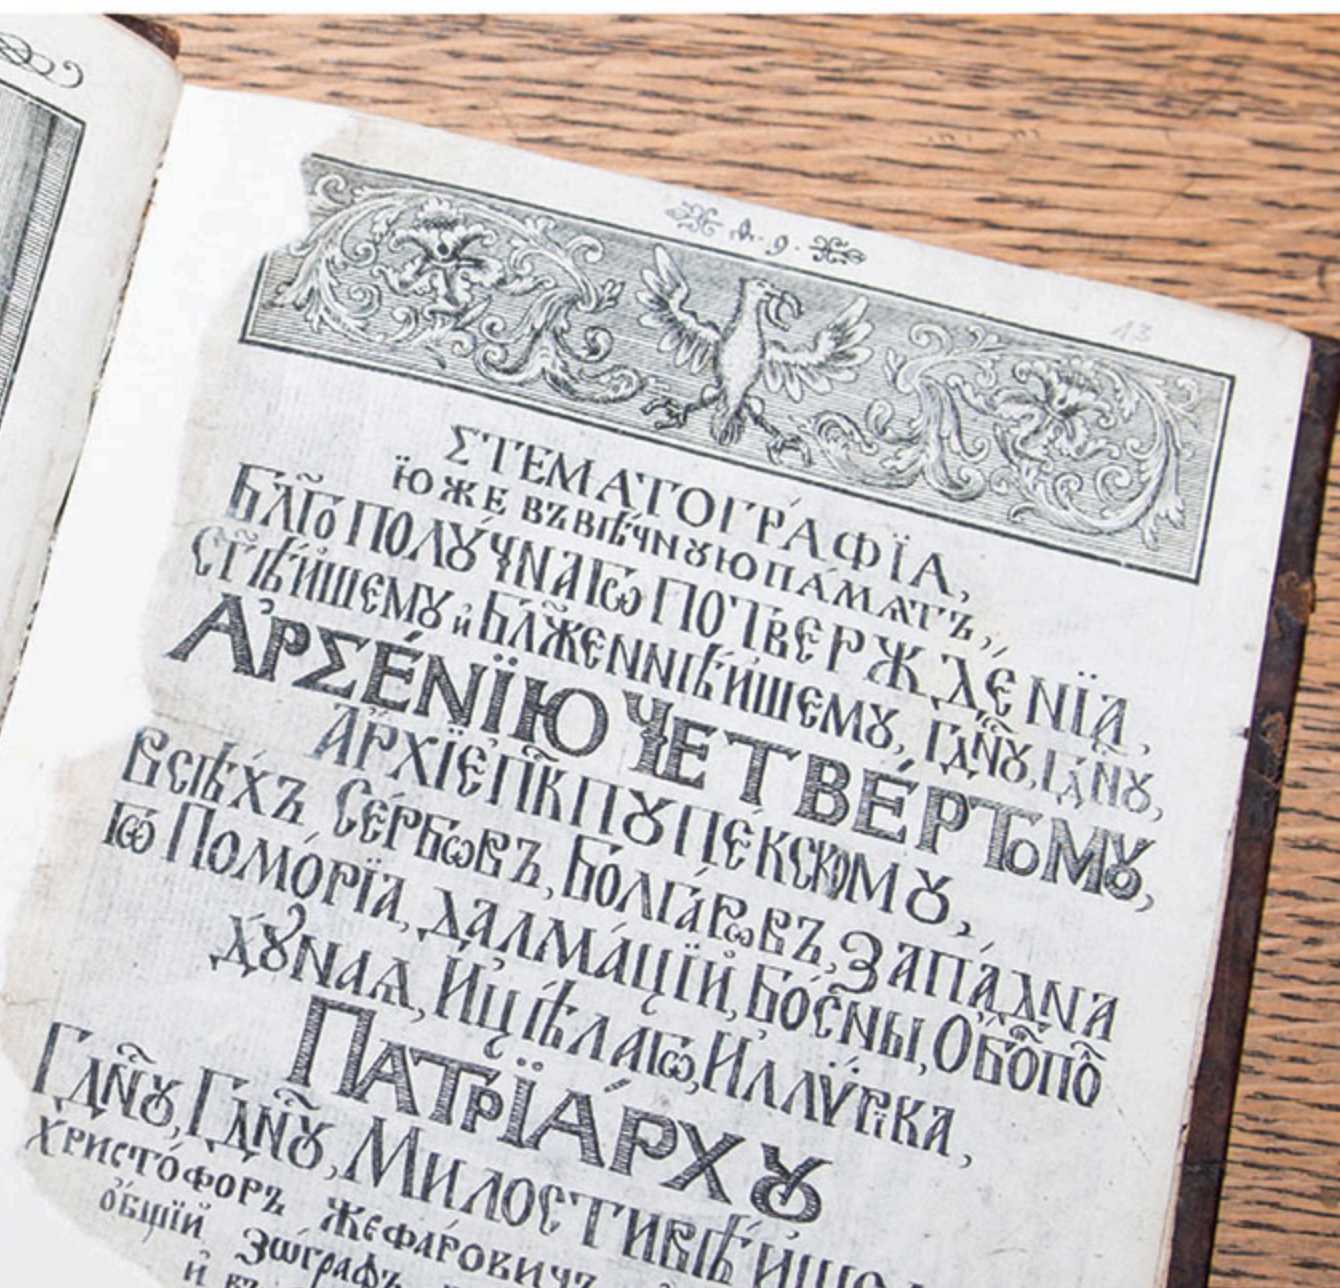 .д.9.
13
ΣТЕМАТОГРА́ФЇА,
Ї́ЮЖЕ ВЪВѢ́ЧНꙊЮПА́МѦТЬ,
БЛ҃ГоПОЛꙊ́ЧНАГѠ ПОТВЕРЖДЕ́НЇѦ,
СТ҃ѢЙШЕМꙊ и҆ БЛ҃ЖЕННѢЙШЕМꙊ, ГДⷭ҇НꙊ, ГДⷭ҇НꙊ,
АРΣЕ́НЇЮ ЧЕТВЕ́РТОМꙊ,
А҆РХЇЕПК҃ПꙊ ПЕ́КСКОМꙊ,
ВСѢ́ХЪ СЕ́РБѠВЪ, БОЛГА́РѠВЪ, ЗАПА́ДНА
ГѠ ПОМО́РЇА, ДАЛМА́ЦЇИ, БО́СНЫ, О҆БО́ПО
ДꙊ́НАѦ, И҆ЦѢ́ЛАГѠ, ИЛЛѴ́РЇКА,
ПАТРЇА́РХꙊ
ГДⷭ҇НꙊ, ГДⷭ҇НꙊ, МИЛОСТИВѢ́ЙШЕ
ХРИСТО́ФОРЪ ЖЕФА́РОВИЧЪ
О́БЩЇЙ ЗѠГРАФЪ
И҆ ВЪ